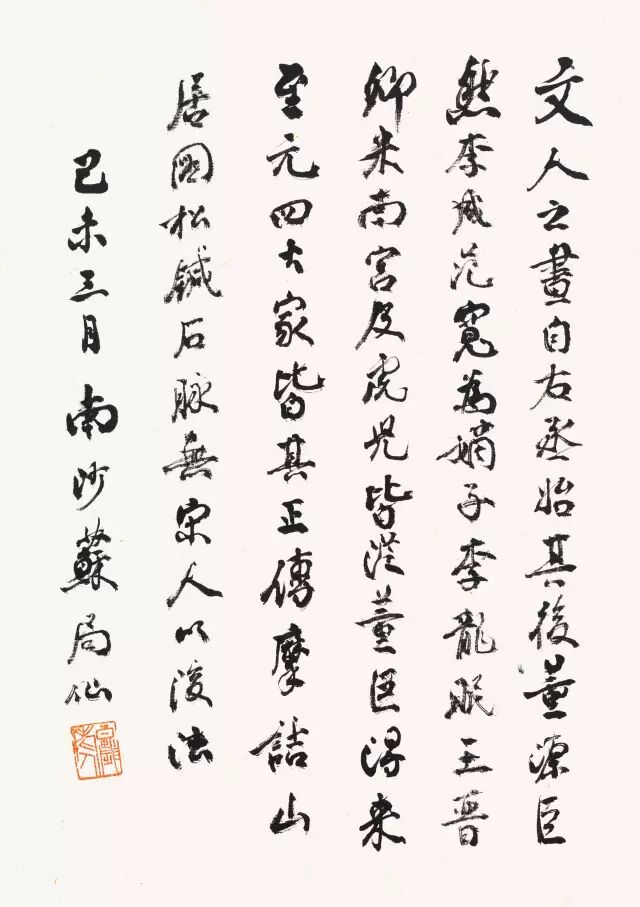 文人之畫自右丞始其後董源巨
然李成范寬為嫡子李龍眠王晉
卿米南宮及虎児皆從董巨得來
至元四大家皆其正傳摩詰山
居圖松鍼石脉無宋人以後法
己未三月南沙蘇局仙